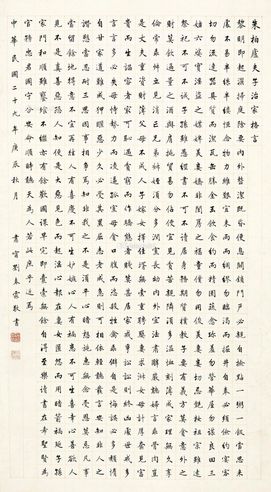 朱柏廬夫子治家格言
黎明即起灑掃庭除要內外整潔既昏便息關鎖門戶必親自檢點一粥一飯當思來
處不易半絲半縷恆念物力維艱宜未雨而綢繆毋臨渴而掘井自奉必須儉約宴客
切勿留連器具質而潔瓦缶勝金玉飲食約而精園蔬愈珍饈勿營華屋勿謀良田三
姑六婆實淫盜之媒婢美妾嬌非閨房之福童僕勿用俊美妻妾切忌豔妝祖宗雖遠
祭祀不可不誠子孫雖愚經書不可不讀居身務期質樸教子要有義方勿貪意外之
財莫飲過量之酒與肩挑貿易勿佔便宜見貧苦親鄰須多溫恤刻薄成家理無久享
倫常乖舛立見消亡兄弟叔姪須分多潤寡長幼內外宜法肅辭嚴聽婦言乖骨肉豈
是丈夫重資財薄父母不成人子嫁女擇佳婿毋索重聘娶媳求淑女毋計厚奩見富
貴而生諂容者最可恥遇貧窮而作驕態者賤莫甚居家戒爭訟訟則終凶處世戒多
言言多必失毋恃勢力而凌逼孤寡勿貪口腹而恣殺生禽乖僻自是悔誤必多頹惰
自甘家道難成狎暱惡少久必受其累屈志老成急則可相依輕聽發言安知非人之
譖愬當忍耐三思因事相爭安知非我之不是須平心暗想施惠無念受恩莫忘凡事
當留餘地得意不宜再往人有喜慶不可生妒忌心人有禍患不可生喜幸心善欲人
見不是真善惡恐人知便是大惡見色而起淫心報在妻女匿怨而用暗箭禍延子孫
家門和順雖饔飧不繼亦有餘歡國課早完即囊橐無餘自得至樂讀書志在聖賢為
官心存君國守分安命順時聽天為人若此庶乎近焉
中華民國二十九年庚辰秋月 肅寧劉春霖敬書